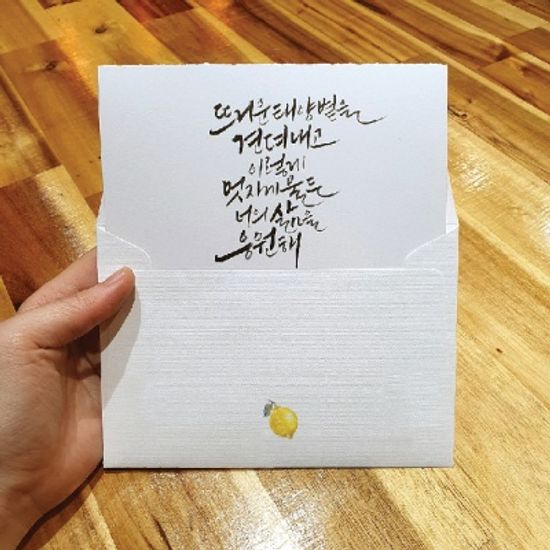 뜨거운 태양볕을
견뎌내고
이렇게
멋지게 물든
너의 삶을
응원해